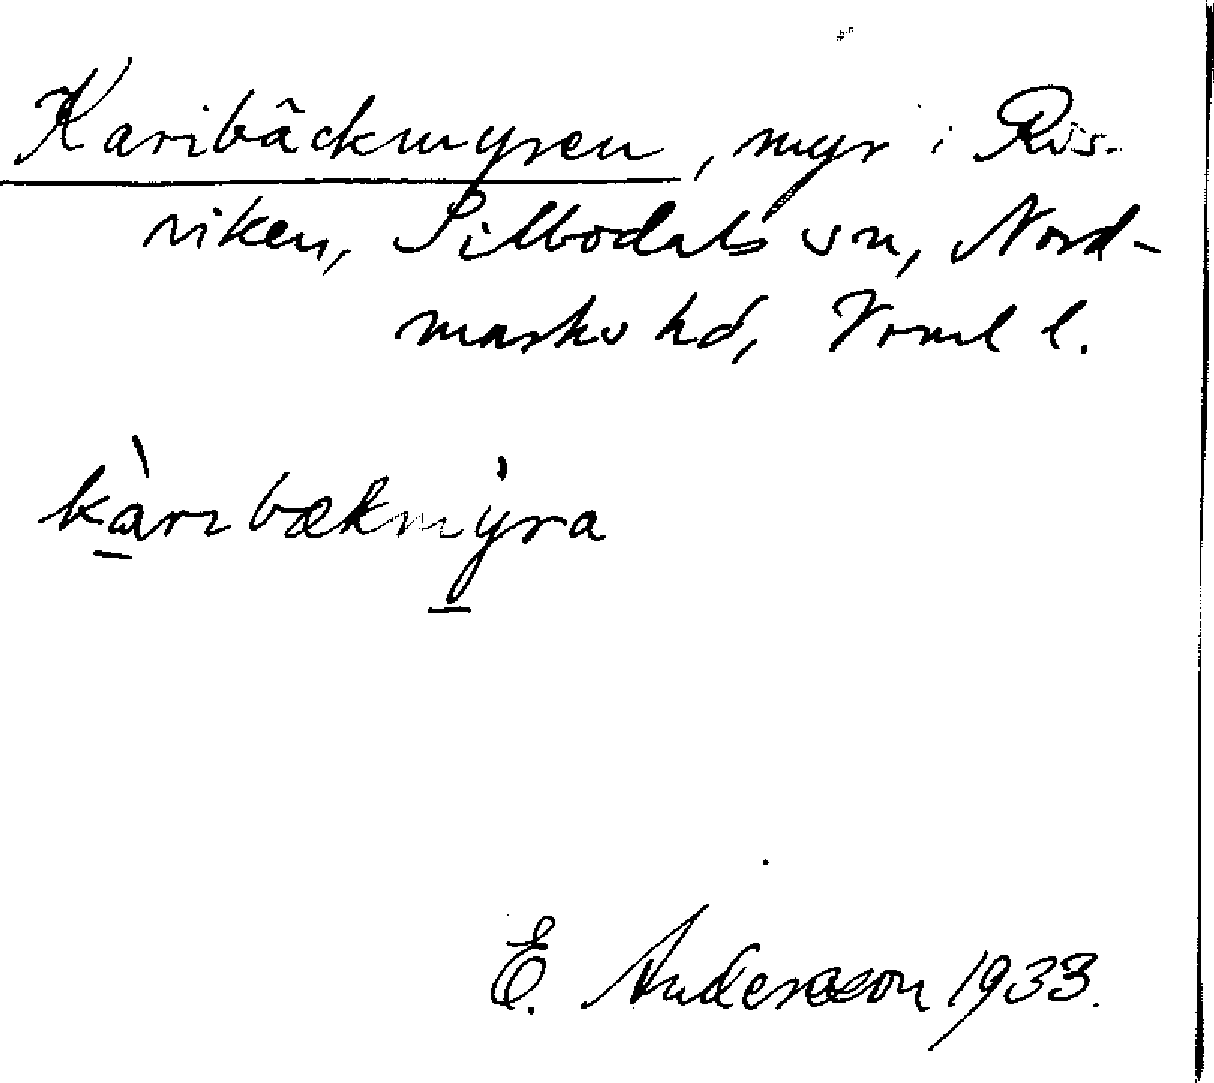 Karibäckmyren, myr i Rös-
riken, Silbodals sn, Nord-
marks hd, Vrml l.
kàribækmýra
E. Andersson 1933.